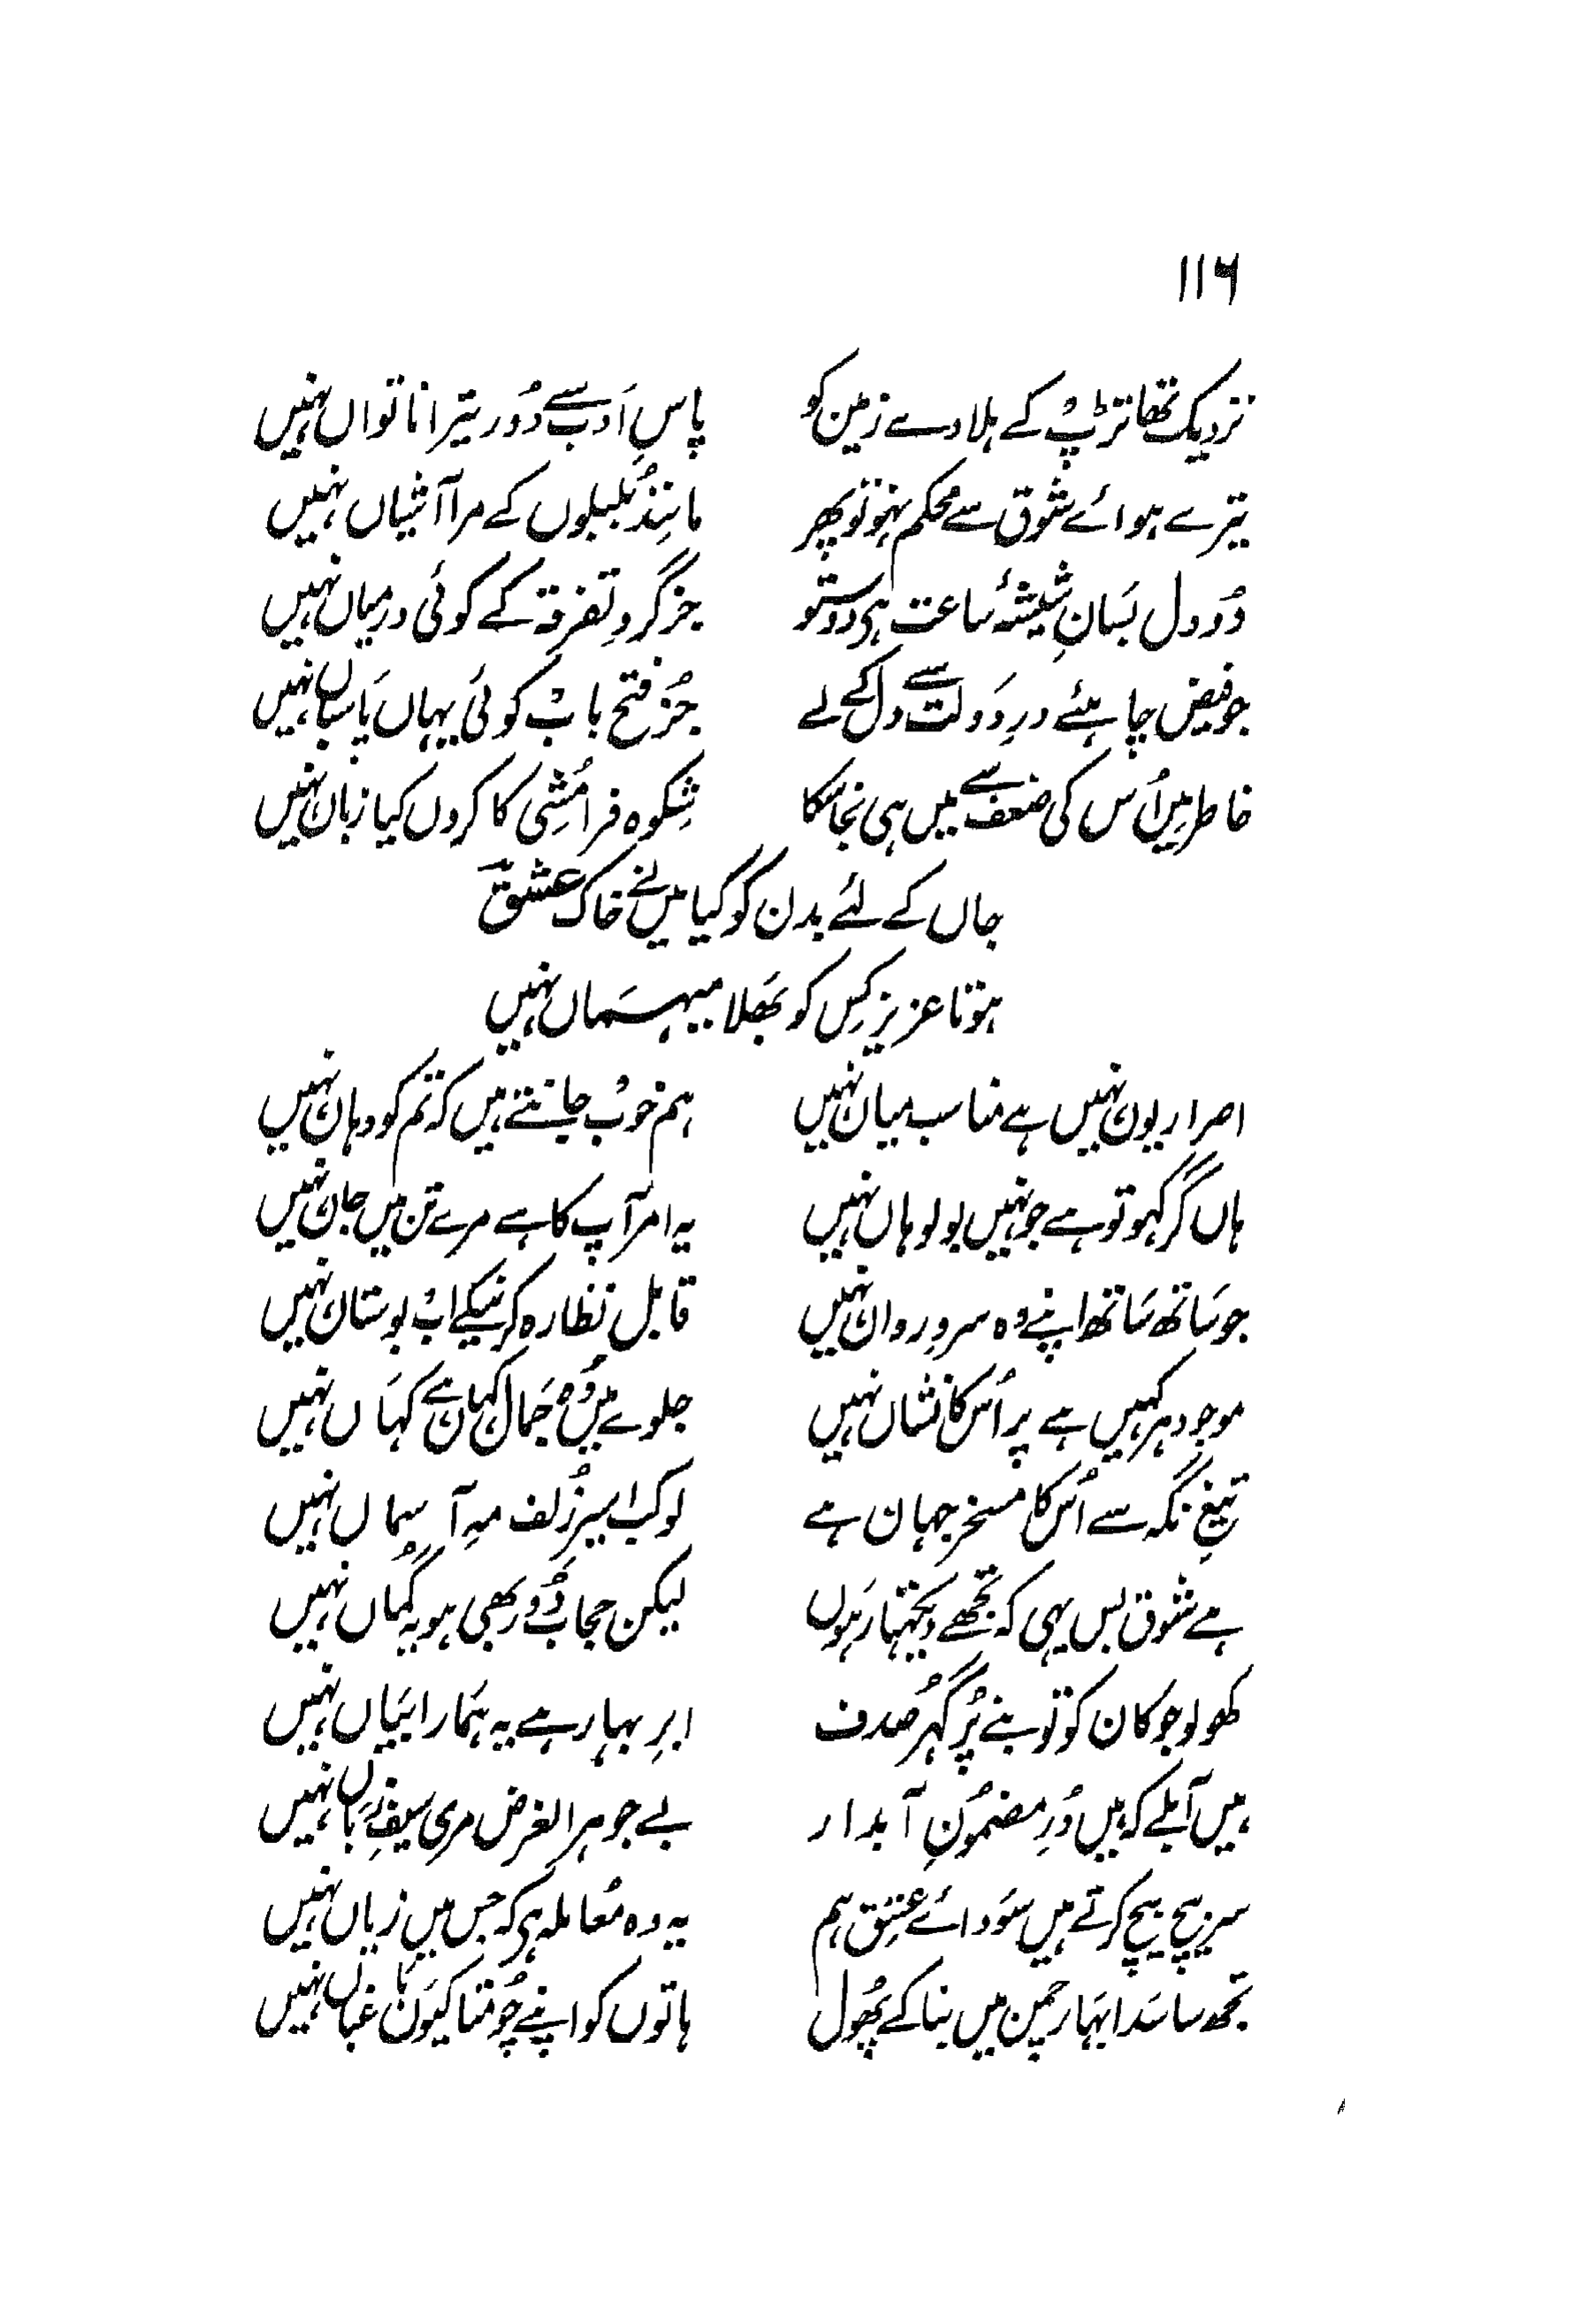 ۱۱۶
نزدیک تھا تڑپ کے ہلا دے زمین کو پاسِ اَدب سے دُور تیرا ناتواں نہیں
تیرے ہوائے شوق سے محکم نہو تو پھر مانِندُ بُلبلوں کے مرا آشیاں نہیں
دُو دل بسَانِ شیشۂ ساعت ہی دوستو جز گردِ تفرقہ کے کوئی درمیاں نہیں
جو فیض چاہئے درِ دَولت سے دل کے لے جُز فتح باب کوئی یہاں پَاسباں نہیں
خاطر میں اُس کی ضعف سے میں ہی نجا سکا شِکوہ فرامُشِی کا کروں کیا زبان نہیں
جاں کے لئے بدن کو کیا میں نے خاک عشقؔ
ہوتا عزیز کِس کو بھَلا میہسَماں نہیں
اصرار یون نہیں ہے مناسب میان نہیں ہم خوب جانتے ہیں کہ تم کو دہان نہیں
ہاں گر کہو تو ہے جو نہیں بولو ہاں نہیں یہ امر آپ کا ہے مرے تن میں جان نہیں
جو سَاتھ سَاتھ اپنے وہ سروِ روان نہیں قابل نظارہ کرنیکے اب بوستان نہیں
موجود ہر کہیں ہے پر اُس کا نشاں نہیں جلوے میں وُہ جَمال کہان ہے کہَاں نہیں
تیغِ نگہ سے اُس کا مسخر جہان ہے لو کب اسیرِ زُلف مہِ آسماں نہیں
ہے شوق بس یہی کہ تجھے دیکھتا رَہوں لیکن حجاب دُور بھی ہو یہ گُماں نہیں
کھولو جو کان کو تو بنے پُر گہُر صدف ابرِ بہار ہے یہ ہَمارا بیَاں نہیں
ہیں آبلے کہ ہیں دُرِ مضمُونِ آبدار بے جوہر الغرض مری سیفِ زبَاں نہیں
سر بیچ بیچ کرتے ہیں سَودائے عشِق ہم یہ وہ مُعاملہ ہی کہ جس میں زیاں نہیں
تجھ سا سَدا بہَار چمن میں بنا کے پھُول ہاتوں کو اپنے چُومتا کیوَں بَاغباں نہیں